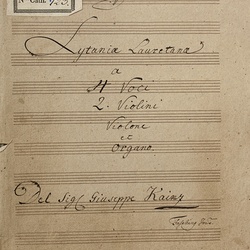 N. Cath. 723.
Lytaniæ Lauretanæ
a
4 Voci
2. Violini
Violone
et
Organo.
Del Sig. Giuseppe Kainz